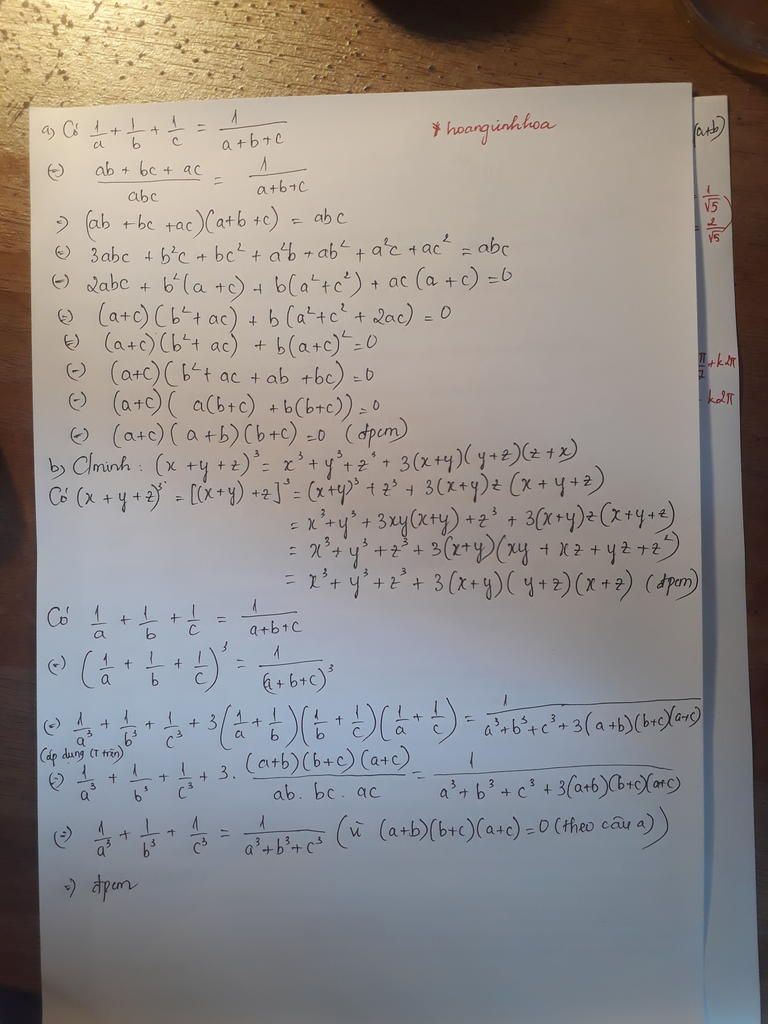 a) Có 1/a + 1/b + 1/c = 1/(a+b+c)
* hoangunhhoa
(=) (ab + bc + ac)/abc = 1/(a+b+c)
=) (ab + bc + ac)(a+b+c) = abc
(=) 3abc + b²c + bc² + a²b + ab² + a²c + ac² = abc
(=) 2abc + b²(a+c) + b(a²+c²) + ac(a+c) = 0
(=) (a+c)(b²+ac) + b(a²+c²+2ac) = 0
(=) (a+c)(b²+ac) + b(a+c)² = 0
(=) (a+c)(b²+ac+ab+bc) = 0
(=) (a+c)(a(b+c) + b(b+c)) = 0
(=) (a+c)(a+b)(b+c) = 0 (đpcm)
b) C/minh : (x+y+z)³ = x³+y³+z³ + 3(x+y)(y+z)(z+x)
Có (x+y+z)³ = [(x+y)+z]³ = (x+y)³ + z³ + 3(x+y)z(x+y+z)
= x³+y³ + 3xy(x+y) + z³ + 3(x+y)z(x+y+z)
= x³+y³+z³ + 3(x+y)(xy + xz + yz + z²)
= x³+y³+z³ + 3(x+y)(y+z)(x+z) (đpcm)
Có 1/a + 1/b + 1/c = 1/(a+b+c)
(=) (1/a + 1/b + 1/c)³ = 1/(a+b+c)³
(=) 1/a³ + 1/b³ + 1/c³ + 3(1/a + 1/b)(1/b + 1/c)(1/a + 1/c) = 1/(a³+b³+c³+3(a+b)(b+c)(a+c))
(áp dụng CT trên)
(=) 1/a³ + 1/b³ + 1/c³ + 3. (a+b)(b+c)(a+c)/(ab. bc. ac) = 1/(a³+b³+c³+3(a+b)(b+c)(a+c))
(=) 1/a³ + 1/b³ + 1/c³ = 1/(a³+b³+c³) (vì (a+b)(b+c)(a+c) = 0 (theo câu a))
=) đpcm
(a+b)
= 1/√5
= 2/√5
+ k2π
k2π